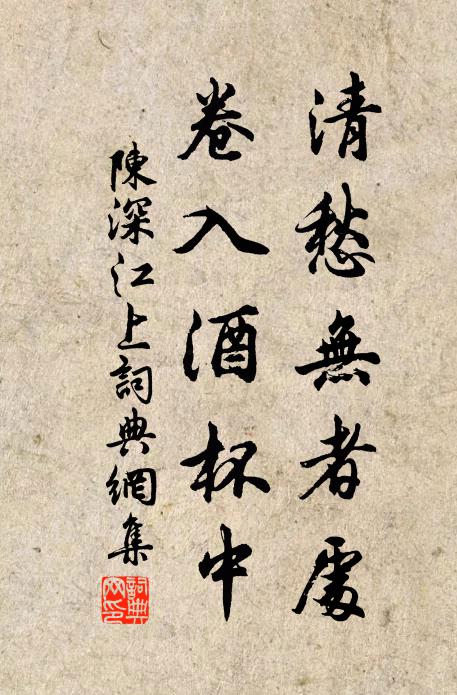 清愁無者處
卷入酒杯中
陳深江上詞典網集
詞典網印